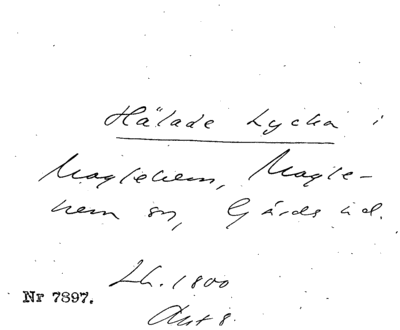 Hälade Lycka i
Maglehem, Magle-
hem sn, Gärds hd.
Lh. 1800
Nr 7897.
Akt 8.